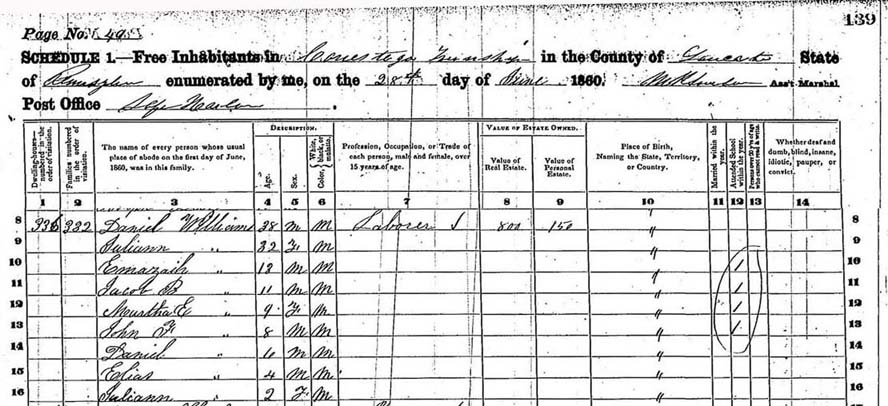 139
Page No. 49
SCHEDULE 1.—Free Inhabitants in Conestoga Township in the County of Lancaster State
of enumerated by me, on the 28th day of June 1860. Ass't Marshal.
Post Office Safe Harbor.
Dwelling-houses—numbered in the order of visitation.
Families numbered in the order of visitation.
The name of every person whose usual place of abode on the first day of June, 1860, was in this family.
DESCRIPTION.
Age.
Sex.
Color, White, black, or mulatto.
Profession, Occupation, or Trade of each person, male and female, over 15 years of age.
VALUE OF ESTATE OWNED.
Value of Real Estate.
Value of Personal Estate.
Place of Birth, Naming the State, Territory, or Country.
Married within the year.
Attended School within the year.
Persons over 20 y'rs of age who cannot read & write.
Whether deaf and dumb, blind, insane, idiotic, pauper, or convict.
1 2 3 4 5 6 7 8 9 10 11 12 13 14
8 336 332 Daniel Williams 38 M M Laborer 800 150 " 8
9 Juliann " 32 F M " 9
10 Emaziah " 13 M M " / 10
11 Jacob B " 11 M M " / 11
12 Martha E " 9 F M " / 12
13 John F " 8 M M " / 13
14 Daniel " 6 M M " 14
15 Elias " 4 M M " 15
16 Juliann " 2 F M " 16